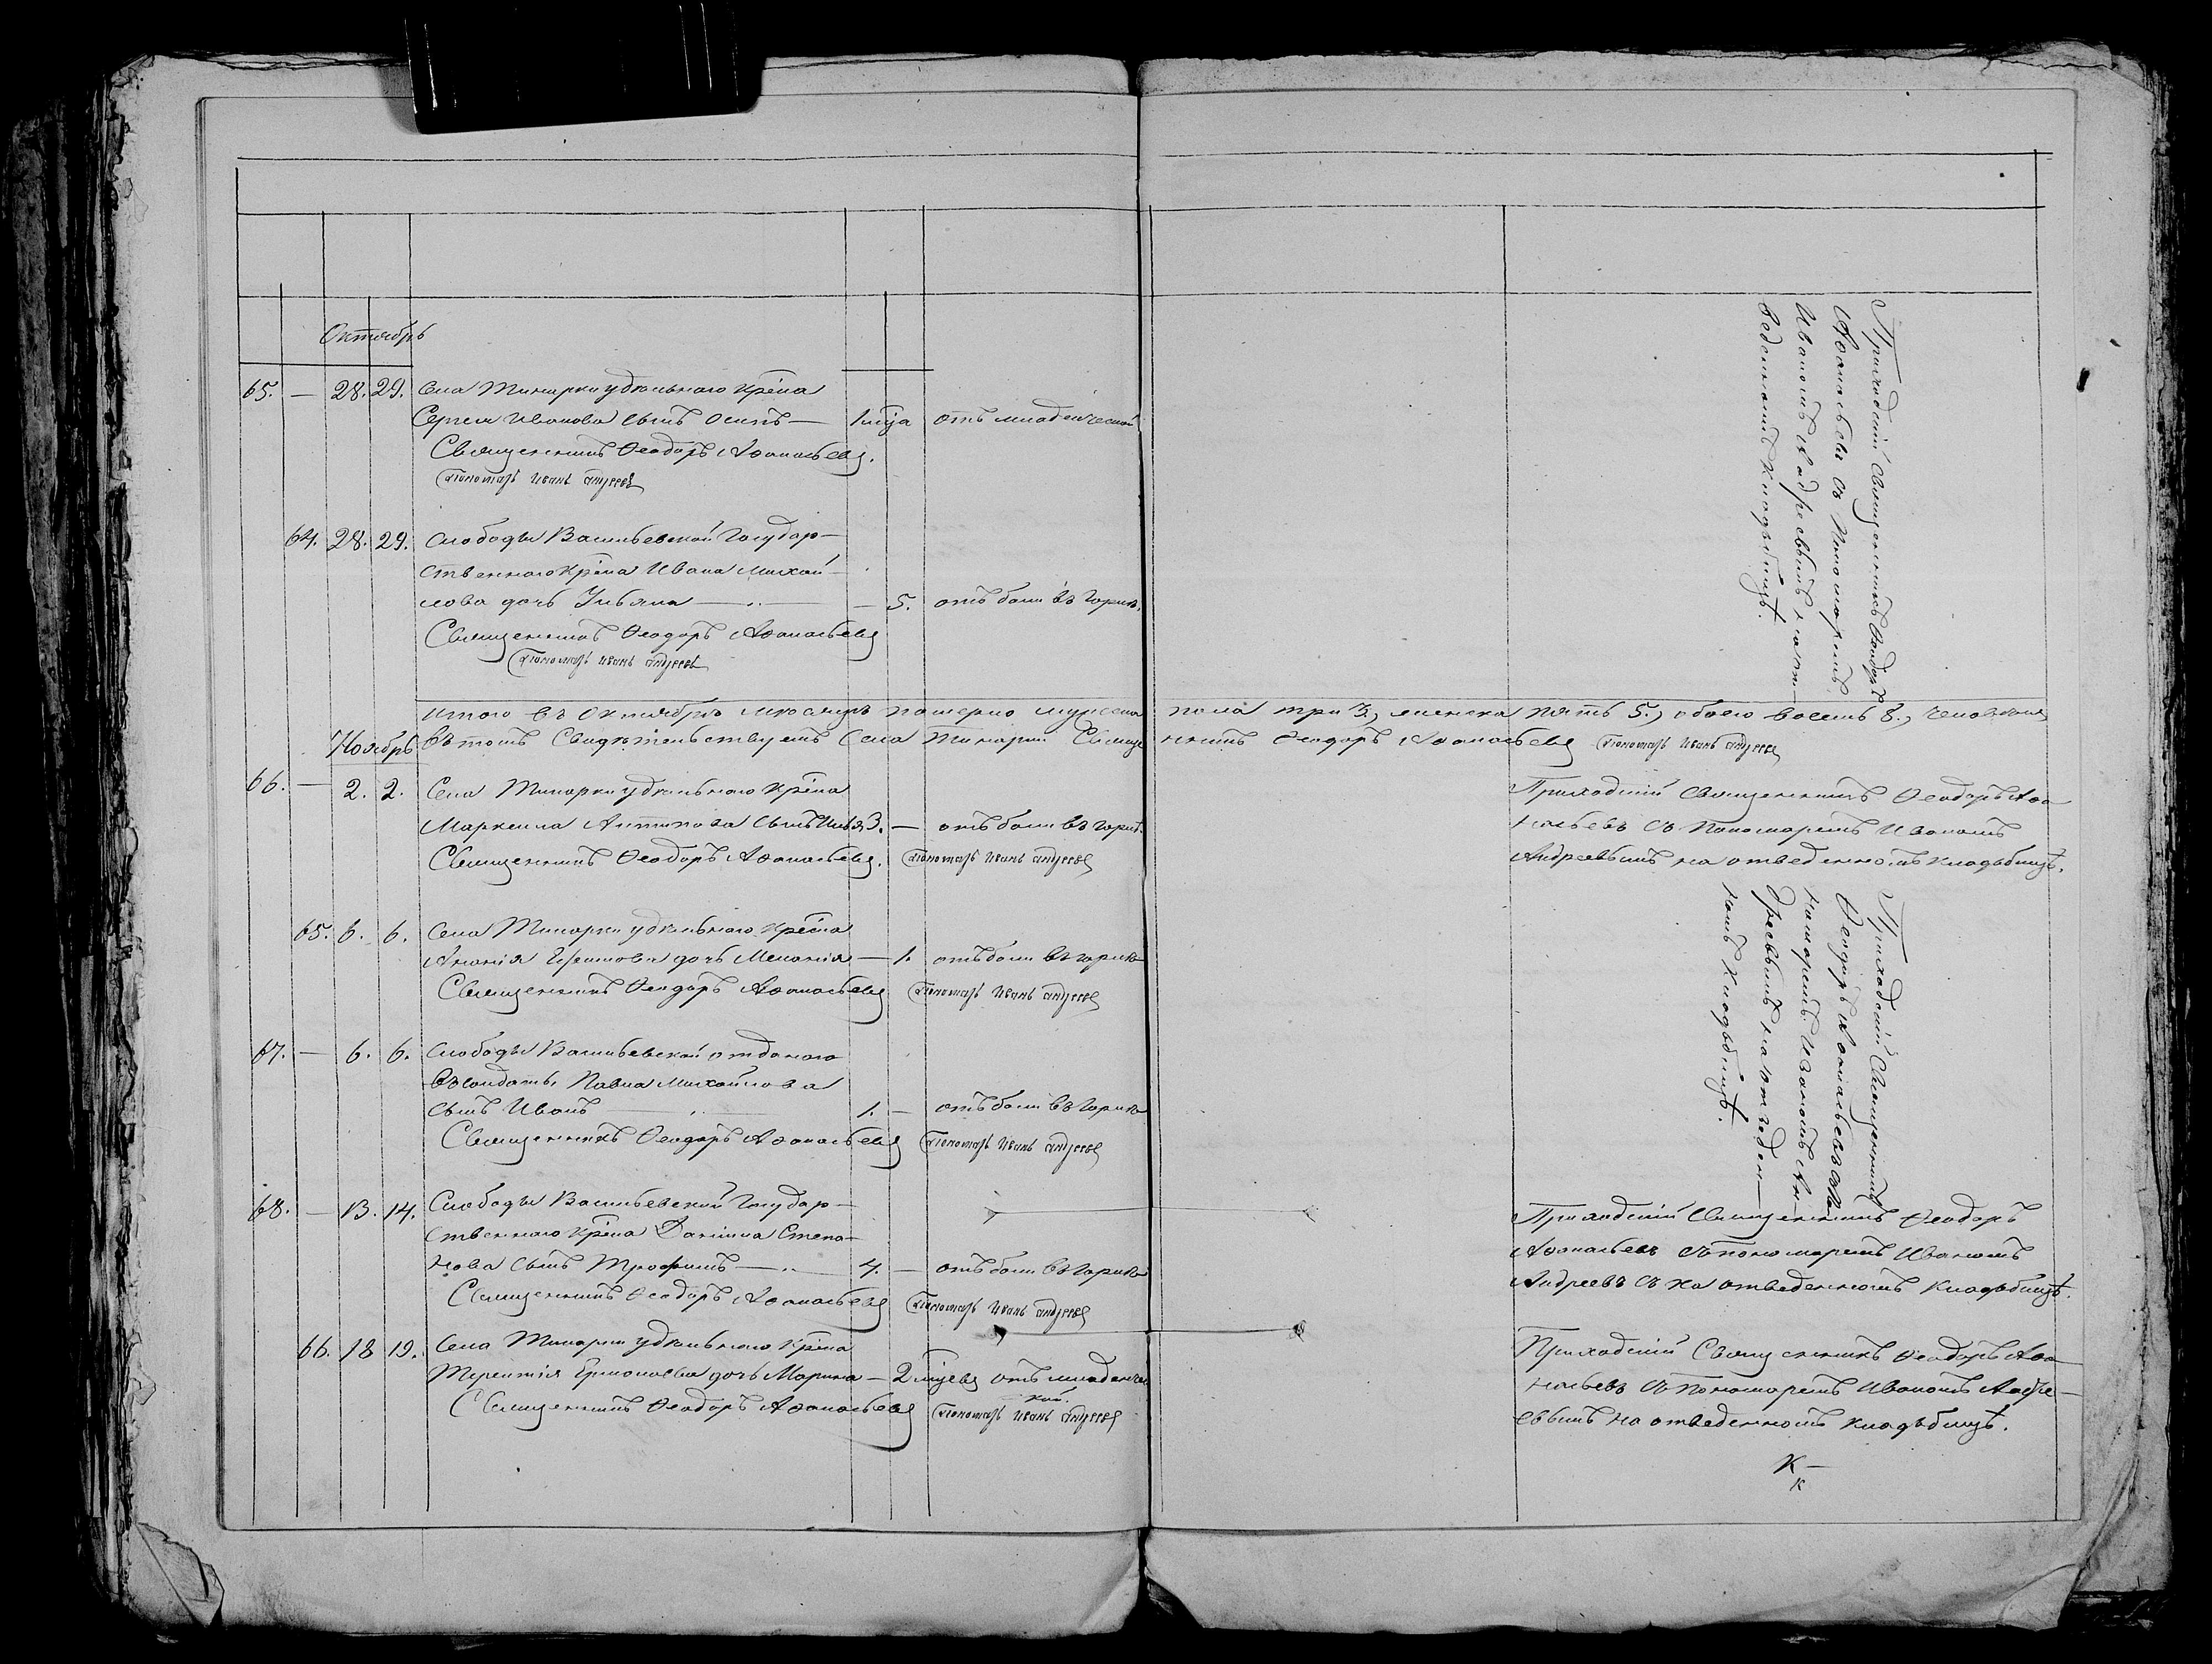 Октябрь
65. — 28. 29. Села Тимаркиудѣльнаго Крѣпа
Сергея Иванова сынъ Осипъ — 1 мца отъ младенческой
Священникъ Ѳеодоръ Аѳанасьевъ.
Пономарь Иванъ Андреевъ
64. 28. 29. Слободы Васильевской Государ—
ственнаго Крѣпа Ивана Михай—
лова дочь Ульяна — — 5. отъ боли въ горлѣ.
Священникъ Ѳеодоръ Аѳанасьевъ
Пономарь Иванъ Андреевъ
Приходскій Священникъ Ѳеодоръ
Аѳанасьевъ съ Пономаремъ
Иваномъ Андреевымъ на от—
веденномъ кладбищѣ.
Итого въ Октябрѣ мѣсяцѣ померло мужеска пола три 3, женска пять 5, обоего восемь 8, человѣкъ
Ноябрь
въ томъ Свидѣтельствуемъ Села Священникъ Ѳеодоръ Аѳанасьевъ Пономарь Иванъ Андреевъ
66. — 2. 2. Села удѣльнаго Крѣпа
Маркелла Антипова сынъ Илья 3. — отъ боли въ горлѣ.
Священникъ Ѳеодоръ Аѳанасьевъ. Пономарь Иванъ Андреевъ
Приходскій Священникъ Ѳеодоръ Аѳа
насьевъ съ Пономаремъ Иваномъ
Андреевымъ на отведенномъ кладбищѣ.
65. 6. 6. Села удѣльнаго Крѣпа
Ананія дочь Меланія — 1. отъ боли въ горлѣ
Священникъ Ѳеодоръ Аѳанасьевъ Пономарь Иванъ Андреевъ
67. — 6. 6. Слободы Васильевской отданаго
въ солдаты Павла Михайлова
сынъ Иванъ — 1. — отъ боли въ горлѣ
Священникъ Ѳеодоръ Аѳанасьевъ Пономарь Иванъ Андреевъ
Приходскій Священникъ
Ѳеодоръ Аѳанасьевъ съ По
номаремъ Иваномъ Ан
дреевымъ на отведен—
номъ кладбищѣ.
68. — 13. 14. Слободы Васильевской Государ—
ственнаго Крѣпа Даніила Степа—
нова сынъ Трофимъ — 4. — отъ боли въ горлѣ
Священникъ Ѳеодоръ Аѳанасьевъ Пономарь Иванъ Андреевъ
Приходскій Священникъ Ѳеодоръ
Аѳанасьевъ съ пономаремъ Иваномъ
Андреевъ съ на отведенномъ кладбищѣ.
66. 18 19. Села удѣльнаго Крѣпа
Терентія Ермолаева дочь Марина — 2 мцевъ отъ младенчес
кой.
Священникъ Ѳеодоръ Аѳанасьевъ Пономарь Иванъ Андреевъ
Приходскій Священникъ Ѳеодоръ Аѳа
насьевъ съ Пономаремъ Иваномъ Андре—
евымъ на отведенномъ кладбищѣ.